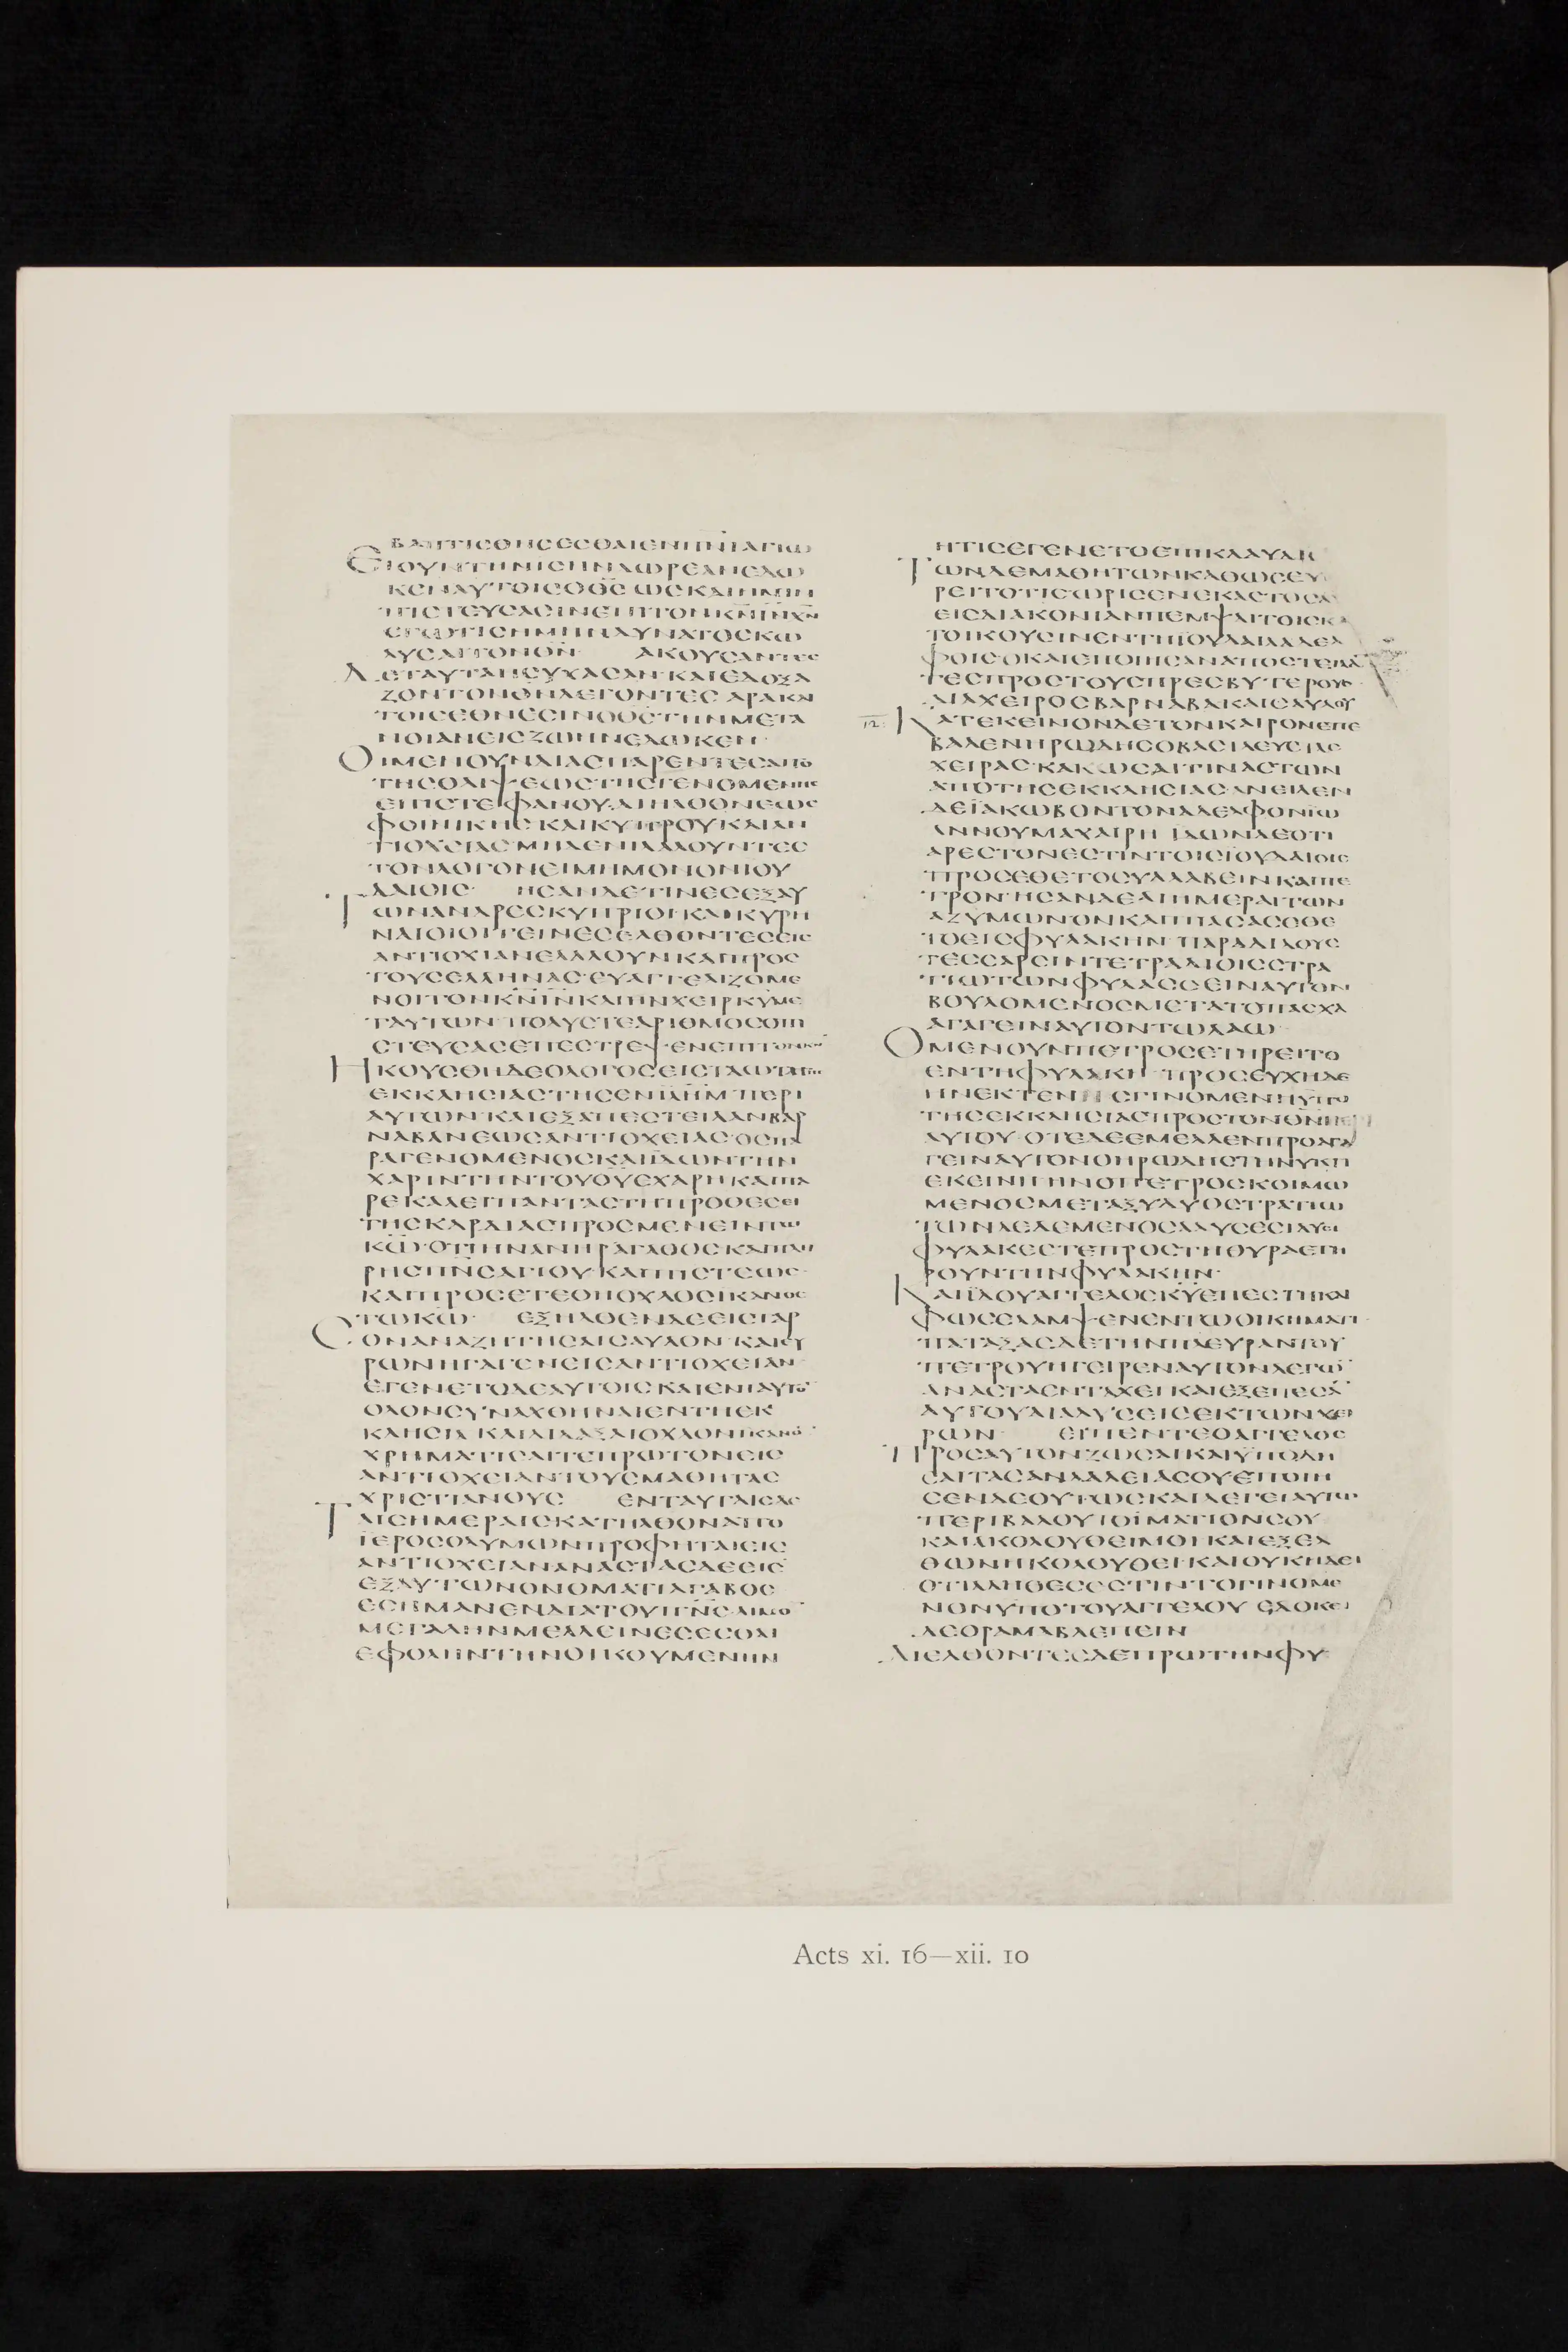 ΒΑΠΤΙϹΘΗϹΕϹΘΑΙΕΝΠΝ̅ΙΑΓΙΩ
ΕΙΟΥΝΤΗΝΙϹΗΝΔΩΡΕΑΝΕΔΩ
ΚΕΝΑΥΤΟΙϹΟΘ̅Ϲ̅ΩϹΚΑΙΗΜΙΝ
ΠΙϹΤΕΥϹΑϹΙΝΕΠΙΤΟΝΚ̅Ν̅Ι̅Ν̅Χ̅Ν̅
ΕΓΩΤΙϹΗΜΗΝΔΥΝΑΤΟϹΚΩ
ΛΥϹΑΙΤΟΝΘ̅Ν̅ ΑΚΟΥϹΑΝΤΕϹ
ΔΕΤΑΥΤΑΗϹΥΧΑϹΑΝ·ΚΑΙΕΔΟΞΑ
ΖΟΝΤΟΝΘ̅Ν̅ΛΕΓΟΝΤΕϹ ΑΡΑΚΑΙ
ΤΟΙϹΕΘΝΕϹΙΝΟΘ̅Ϲ̅ΤΗΝΜΕΤΑ
ΝΟΙΑΝΕΙϹΖΩΗΝΕΔΩΚΕΝ·
ΟΙΜΕΝΟΥΝΔΙΑϹΠΑΡΕΝΤΕϹΑΠΟ
ΤΗϹΘΛΙΨΕΩϹΤΗϹΓΕΝΟΜΕΝΗϹ
ΕΠΙϹΤΕΦΑΝΟΥ·ΔΙΗΛΘΟΝΕΩϹ
ΦΟΙΝΙΚΗϹΚΑΙΚΥΠΡΟΥΚΑΙΑΝ
ΤΙΟΧΕΙΑϹΜΗΔΕΝΙΛΑΛΟΥΝΤΕϹ
ΤΟΝΛΟΓΟΝΕΙΜΗΜΟΝΟΝΙΟΥ
ΔΑΙΟΙϹ· ΗϹΑΝΔΕΤΙΝΕϹΕΞΑΥ
ΤΩΝΑΝΔΡΕϹΚΥΠΡΙΟΙΚΑΙΚΥΡΗ
ΝΑΙΟΙΟΙΤΕΙΝΕϹΕΛΘΟΝΤΕϹΕΙϹ
ΑΝΤΙΟΧΙΑΝΕΛΑΛΟΥΝΚΑΙΠΡΟϹ
ΤΟΥϹΕΛΛΗΝΑϹ·ΕΥΑΓΓΕΛΙΖΟΜΕ
ΝΟΙΤΟΝΚ̅Ν̅Ι̅Ν̅ΚΑΙΗΝΧΕΙΡΚ̅Υ̅ΜΕ
ΤΑΥΤΩΝ·ΠΟΛΥϹΤΕΑΡΙΘΜΟϹΟΠΙ
ϹΤΕΥϹΑϹΕΠΕϹΤΡΕΨΕΝΕΠΙΤΟΝΚ̅Ν̅
ΗΚΟΥϹΘΗΔΕΟΛΟΓΟϹΕΙϹΤΑΩΤΑΤΗϹ
ΕΚΚΛΗϹΙΑϹΤΗϹΕΝΙ̅Λ̅Η̅Μ̅ ΠΕΡΙ
ΑΥΤΩΝ·ΚΑΙΕΞΑΠΕϹΤΕΙΛΑΝΒΑΡ
ΝΑΒΑΝΕΩϹΑΝΤΙΟΧΕΙΑϹ·ΟϹΠΑ
ΡΑΓΕΝΟΜΕΝΟϹΚΑΙΪΔΩΝΤΗΝ
ΧΑΡΙΝΤΗΝΤΟΥΘ̅Υ̅ΕΧΑΡΗΚΑΙΠΑ
ΡΕΚΑΛΕΙΠΑΝΤΑϹΤΗΠΡΟΘΕϹΕΙ
ΤΗϹΚΑΡΔΙΑϹΠΡΟϹΜΕΝΕΙΝΤΩ
Κ̅Ω̅·ΟΤΙΗΝΑΝΗΡΑΓΑΘΟϹΚΑΙΠΛΗ
ΡΗϹΠ̅Ν̅Ϲ̅ΑΓΙΟΥ·ΚΑΙΠΙϹΤΕΩϹ·
ΚΑΙΠΡΟϹΕΤΕΘΗΟΧΛΟϹΪΚΑΝΟϹ
ΤΩΚ̅Ω̅· ΕΞΗΛΘΕΝΔΕΕΙϹΤΑΡ
ϹΟΝΑΝΑΖΗΤΗϹΑΙϹΑΥΛΟΝ·ΚΑΙΕΥ
ΡΩΝΗΓΑΓΕΝΕΙϹΑΝΤΙΟΧΕΙΑΝ
ΕΓΕΝΕΤΟΔΕΑΥΤΟΙϹΚΑΙΕΝΙΑΥΤΟ̅
ΟΛΟΝϹΥΝΑΧΘΗΝΑΙΕΝΤΗΕΚ
ΚΛΗϹΙΑ ΚΑΙΔΙΔΑΞΑΙΟΧΛΟΝΪΚΑΝΟ̅
ΧΡΗΜΑΤΙϹΑΙΤΕΠΡΩΤΟΝΕΙϹ
ΑΝΤΙΟΧΕΙΑΝΤΟΥϹΜΑΘΗΤΑϹ
ΧΡΙϹΤΙΑΝΟΥϹ ΕΝΤΑΥΤΑΙϹΔΕ
ΤΑΙϹΗΜΕΡΑΙϹΚΑΤΗΛΘΟΝΑΠΟ
ΪΕΡΟϹΟΛΥΜΩΝΠΡΟΦΗΤΑΙΕΙϹ
ΑΝΤΙΟΧΕΙΑΝΑΝΑϹΤΑϹΔΕΕΙϹ
ΕΞΑΥΤΩΝΟΝΟΜΑΤΙΑΓΑΒΟϹ
ΕϹΗΜΑΝΕΝΔΙΑΤΟΥΠ̅Ν̅Ϲ̅ΛΙΜΟ̅
ΜΕΓΑΛΗΝΜΕΛΛΕΙΝΕϹΕϹΘΑΙ
ΕΦΟΛΗΝΤΗΝΟΙΚΟΥΜΕΝΗΝ
ΗΤΙϹΕΓΕΝΕΤΟΕΠΙΚΛΑΥΔΙΟΥ
ΤΩΝΔΕΜΑΘΗΤΩΝΚΑΘΩϹΕΥ
ΡΕΙΤΟΤΙϹΩΡΙϹΕΝΕΚΑϹΤΟϹΑΥ
ΕΙϹΔΙΑΚΟΝΙΑΝΠΕΜΨΑΙΤΟΙϹΚΑ
ΤΟΙΚΟΥϹΙΝΕΝΤΗΪΟΥΔΑΙΑΑΔΕΛ
ΦΟΙϹΟΚΑΙΕΠΟΙΗϹΑΝΑΠΟϹΤΕΙΛΑ̅
ΤΕϹΠΡΟϹΤΟΥϹΠΡΕϹΒΥΤΕΡΟΥϹ
ΔΙΑΧΕΙΡΟϹΒΑΡΝΑΒΑΚΑΙϹΑΥΛΟΥ
12. ΚΑΤΕΚΕΙΝΟΝΔΕΤΟΝΚΑΙΡΟΝΕΠΕ
ΒΑΛΕΝΗΡΩΔΗϹΟΒΑϹΙΛΕΥϹΤΑϹ
ΧΕΙΡΑϹ·ΚΑΚΩϹΑΙΤΙΝΑϹΤΩΝ
ΑΠΟΤΗϹΕΚΚΛΗϹΙΑϹΑΝΕΙΛΕΝ
ΔΕΪΑΚΩΒΟΝΤΟΝΑΔΕΛΦΟΝΪΩ
ΑΝΝΟΥΜΑΧΑΙΡΗ ΙΔΩΝΔΕΟΤΙ
ΑΡΕϹΤΟΝΕϹΤΙΝΤΟΙϹΪΟΥΔΑΙΟΙϹ
ΠΡΟϹΕΘΕΤΟϹΥΛΛΑΒΕΙΝΚΑΙΠΕ
ΤΡΟΝ·ΗϹΑΝΔΕΑΙΗΜΕΡΑΙΤΩΝ
ΑΖΥΜΩΝ·ΟΝΚΑΙΠΙΑϹΑϹΕΘΕ
ΤΟΕΙϹΦΥΛΑΚΗΝ·ΠΑΡΑΔΙΔΟΥϹ
ΤΕϹϹΑΡϹΙΝΤΕΤΡΑΔΙΟΙϹϹΤΡΑ
ΤΙΩΤΩΝΦΥΛΑϹϹΕΙΝΑΥΤΟΝ
ΒΟΥΛΟΜΕΝΟϹΜΕΤΑΤΟΠΑϹΧΑ
ΑΓΑΓΕΙΝΑΥΤΟΝΤΩΛΑΩ·
ΟΜΕΝΟΥΝΠΕΤΡΟϹΕΤΗΡΕΙΤΟ
ΕΝΤΗΦΥΛΑΚΗ ΠΡΟϹΕΥΧΗΔΕ
ΗΝΕΚΤΕΝ ΓΕΙΝΟΜΕΝΗΫΠΟ
ΤΗϹΕΚΚΛΗϹΙΑϹΠΡΟϹΤΟΝΘ̅Ν̅ΠΕΡΙ
ΑΥΤΟΥ·ΟΤΕΔΕΕΜΕΛΛΕΝΠΡΟΑΓΑ
ΓΕΙΝΑΥΤΟΝΟΗΡΩΔΗϹΤΗΝΥΚΤΙ
ΕΚΕΙΝΗΗΝΟΠΕΤΡΟϹΚΟΙΜΩ
ΜΕΝΟϹΜΕΤΑΞΥΔΥΟϹΤΡΑΤΙΩ
ΤΩΝΔΕΔΕΜΕΝΟϹΑΛΥϹΕϹΙΔΥϹΙ
ΦΥΛΑΚΕϹΤΕΠΡΟϹΤΗΘΥΡΑΕΤΗ
ΡΟΥΝΤΗΝΦΥΛΑΚΗΝ·
ΚΑΙΪΔΟΥΑΓΓΕΛΟϹΚ̅Υ̅ΕΠΕϹΤΗΚΑΙ
ΦΩϹΕΛΑΜΨΕΝΕΝΤΩΟΙΚΗΜΑΤΙ
ΠΑΤΑΞΑϹΔΕΤΗΝΠΛΕΥΡΑΝΤΟΥ
ΠΕΤΡΟΥΗΓΕΙΡΕΝΑΥΤΟΝΛΕΓΩ̅
ΑΝΑϹΤΑΕΝΤΑΧΕΙ·ΚΑΙΕΞΕΠΕϹΑ̅
ΑΥΤΟΥΑΙΑΛΥϹΕΙϹΕΚΤΩΝΧΕΙ
ΡΩΝ· ΕΙΠΕΝΤΕΟΑΓΓΕΛΟϹ
ΠΡΟϹΑΥΤΟΝΖΩϹΑΙΚΑΙΫΠΟΔΗ
ϹΑΙΤΑϹΑΝΔΑΛΕΙΑϹΟΥΕΠΟΙΗ
ϹΕΝΔΕΟΥΤΩϹΚΑΙΛΕΓΕΙΑΥΤΩ·
ΠΕΡΙΒΑΛΟΥΤΟΪΜΑΤΙΟΝϹΟΥ
ΚΑΙΑΚΟΛΟΥΘΕΙΜΟΙ·ΚΑΙΕΞΕΛ
ΘΩΝΗΚΟΛΟΥΘΕΙ·ΚΑΙΟΥΚΗΔΕΙ
ΟΤΙΑΛΗΘΕϹΕϹΤΙΝΤΟΓΙΝΟΜΕ
ΝΟΝΥΠΟΤΟΥΑΓΓΕΛΟΥ ΕΔΟΚΕΙ
ΔΕΟΡΑΜΑΒΛΕΠΕΙΝ
ΔΙΕΛΘΟΝΤΕϹΔΕΠΡΩΤΗΝΦΥ
Acts xi. 16—xii. 10